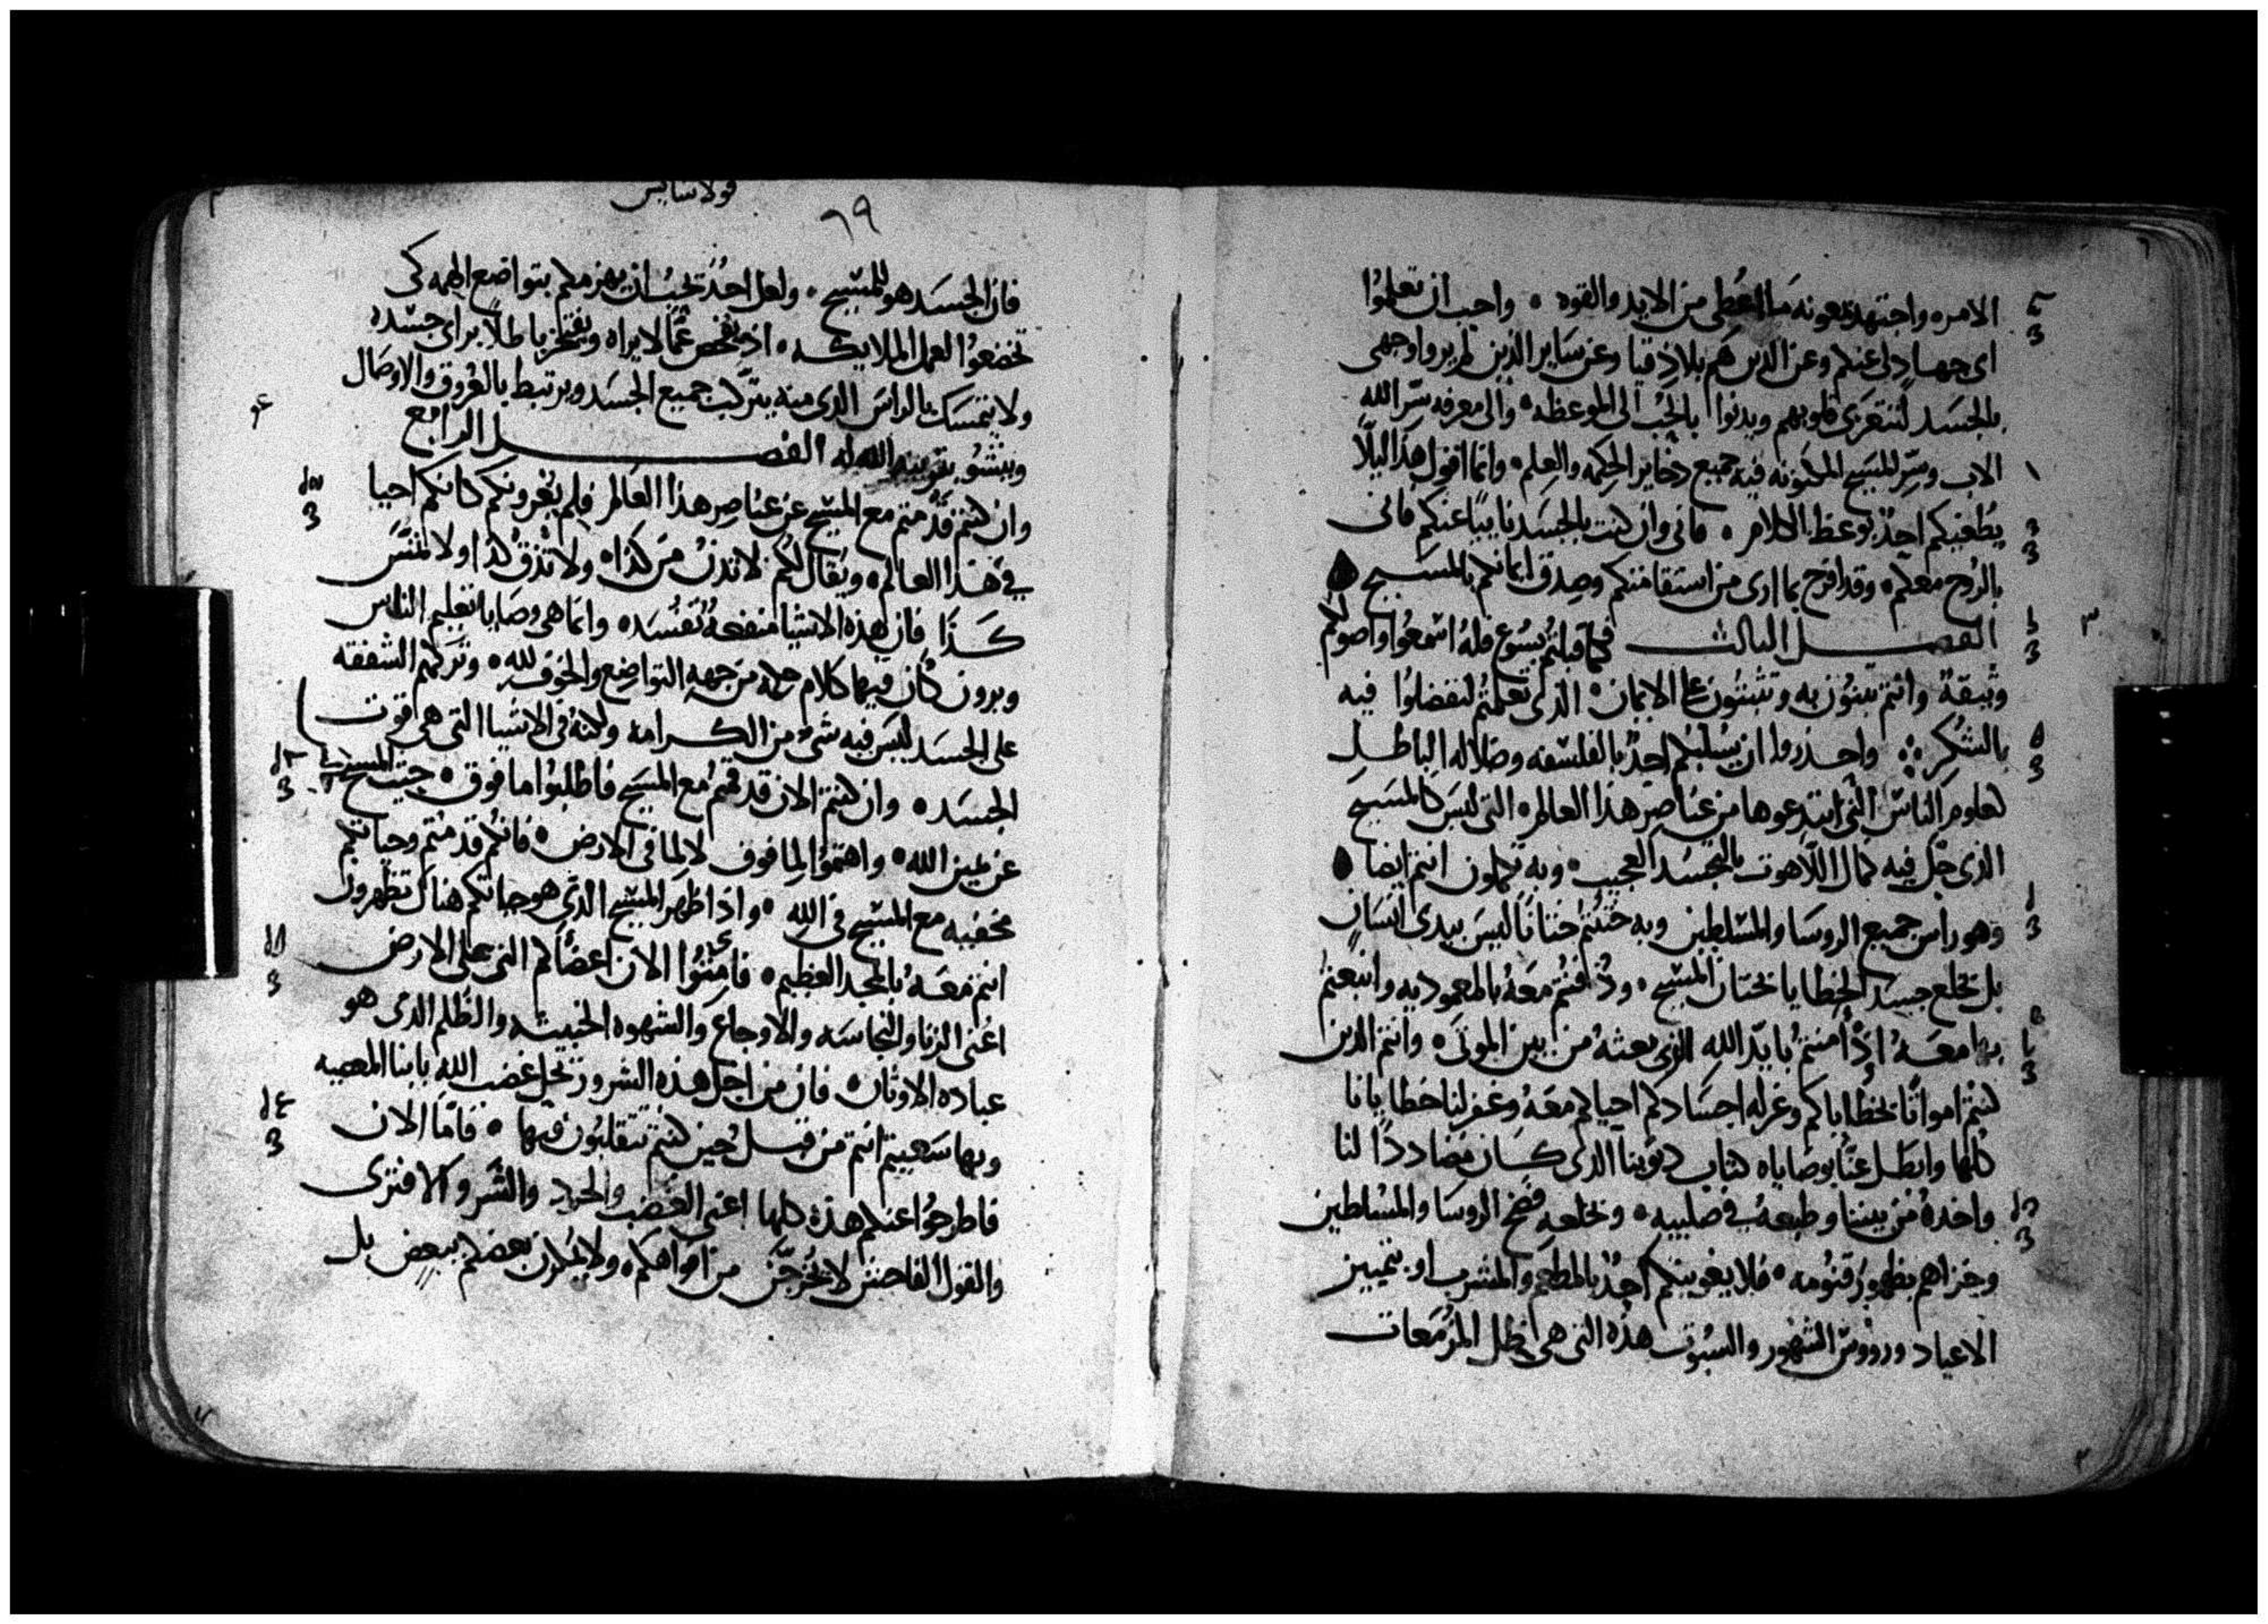 الامره واجتهد بمعونه ما اُعطى من الايد والقوه ۰ واحب ان تعلموُا
اى جهادٍ لى عنكم وعن الذين هم بلاذِقيا وعن ساير الذين لم يروا وجهى
بالجسَد لتتعزى قلوبهم ويدنوا بالحُب الى الموعظه ۰ والى معرفه سِّر الله
الاب وسِّر المسَيح المكنونه فيه جميع ذخاير الحكِمه والعِلم ۰ وانما اقول هذا ليلّا
يُطغيكم احدٌ بوعظ الكلام ۰ فانى وان كنت بالجسَد نايبًا عنكم فانى
بالرُوح معكم ۰ وقد افرح بما ارى من استقامتكم وصِدق ايمانكم بالمسَيح ۰
الفصــل الثالث فكما قبلتُم يسُوع فلهُ اسمعوُا واصولكم
وثيقة وانتم تبنُون به وتثبتُون على الايمان ۰ الذى تعلمتُم لتفضلوُا فيه
بالشكُر ۰ واحــذروا ان يسُلبكُم احدٌ بالفلسَفه وضلاله الباطــلِ
لعلوم الناسَ التى ابتدعوها من عناصِر هذا العالم ۰ التى ليسَ كالمسَيح
الذى حّل فيه كمال اللاهوت بالتجسَد العجيب ۰ وبه تكملون انتم ايضا ۰
وهو راس جميع الروسَا والمسَلطين وبه خُتنتُم ختانًا ليسَ بيدى انسَانٍ
بل بخلع جسِد الخطايا بختان المسَيح ۰ ودُفنتُم معهُ بالمعموديه وانبعثتم
بها معــهُ اذ اُمنتمُ بايّد اللهِ الذى بعثهُ من بين الموتى ۰ وانتم الذين
كنتم امواتًا بخطاياكم وغرله اجسَادكم احياكم معَهُ وغفر لنا خطايانا
كلها وابطَــل عنّا بوصَاياه كتاب ديُوننا الذى كــان مضاددًا لنا
واخذهُ من بيننا وطبعهُ فى صليبه ۰ وبخلعهِ فضح الروسَا والمسُلطين
وخزاهم بظهور قنوُمه ۰ فلا يغوينكم احدٌ بالمطعم والمشرب او بتمييز
الاعياد وروُوس الشهُور والسبُوت هذه التى هى اظِل المزُمعات
قولاسايس
٦٩
فان الجسَد هو المسَيح ۰ ولعل احدُ تحِبُ ان يهزمكم بتواضع الهمه كى
تخضعوُا لعمل الملايكــه ۰ اذ يفحص عمّا لا يراه ويفتخر باطلًا براى جسَده
ولا يتمسَك بالراسَ الذى منه يترّكب جميع الجسَد ويرتبط بالعُروق والاوصَال
وينشوُ بتربيه الله له الفصــــــل الرابع
وان كنتم قدُ مُتم مع المسَيح عن عنَاصِر هذا العالم فلِم يُغرونكم كانكم احيا
فى هَذا العالم ۰ ويُقال لكُم لا تدنُ من كذا ۰ ولا تذُقْ كذا ولا تمَسّ
كــذَا فان هذه الاشيا منفعهُ تُفسَده ۰ وانما هى وصَايا تعليم الناسَ
ويرون كُان فيها كلام حكمه من جهه التواضِع والخوف لله ۰ وتركهم الشفقه
على الجسَد ليسَ فيه شىُ من الكــرامه ولكنهُ فى الاشيا التى هى قوت
الجسَد ۰ وان كنتم الان قد قمتم معَ المسَيح فاطلبوُا ما فوق ۰ حيث المسَيح
عن يمين الله ۰ واهتموُا لِما فوق لا لِما فى الارض ۰ فانكُم قد مُتم وحياتكم
مخفيه مع المسَيح فى الله ۰ واذا ظهر المسَيح الذى هو حياتكم هناك تظهرون
انتم معَــهُ بالمجد العظيم ۰ فاميتوُا الان اعضَاكم التى على الارض
اعُنى الزنا والنجاسَه والاوجاع والشهوه الخبيثه والظُلم الذى هو
عباده الاوثان ۰ فان من اجل هذه الشرور يحل غضب الله بابنا المعصيه
وبها سَعيتم انتم من قبــل حين كنتم تتقلبُون فيها ۰ فامّا الان
فاطرحوُا عنكم هذه كلها اعنى الغضب والحرد والشر والافترى
والقول الفاحش لا يخُرجَن من افواهكم ۰ ولا يكذبن بعضكم ببعضٍ بل